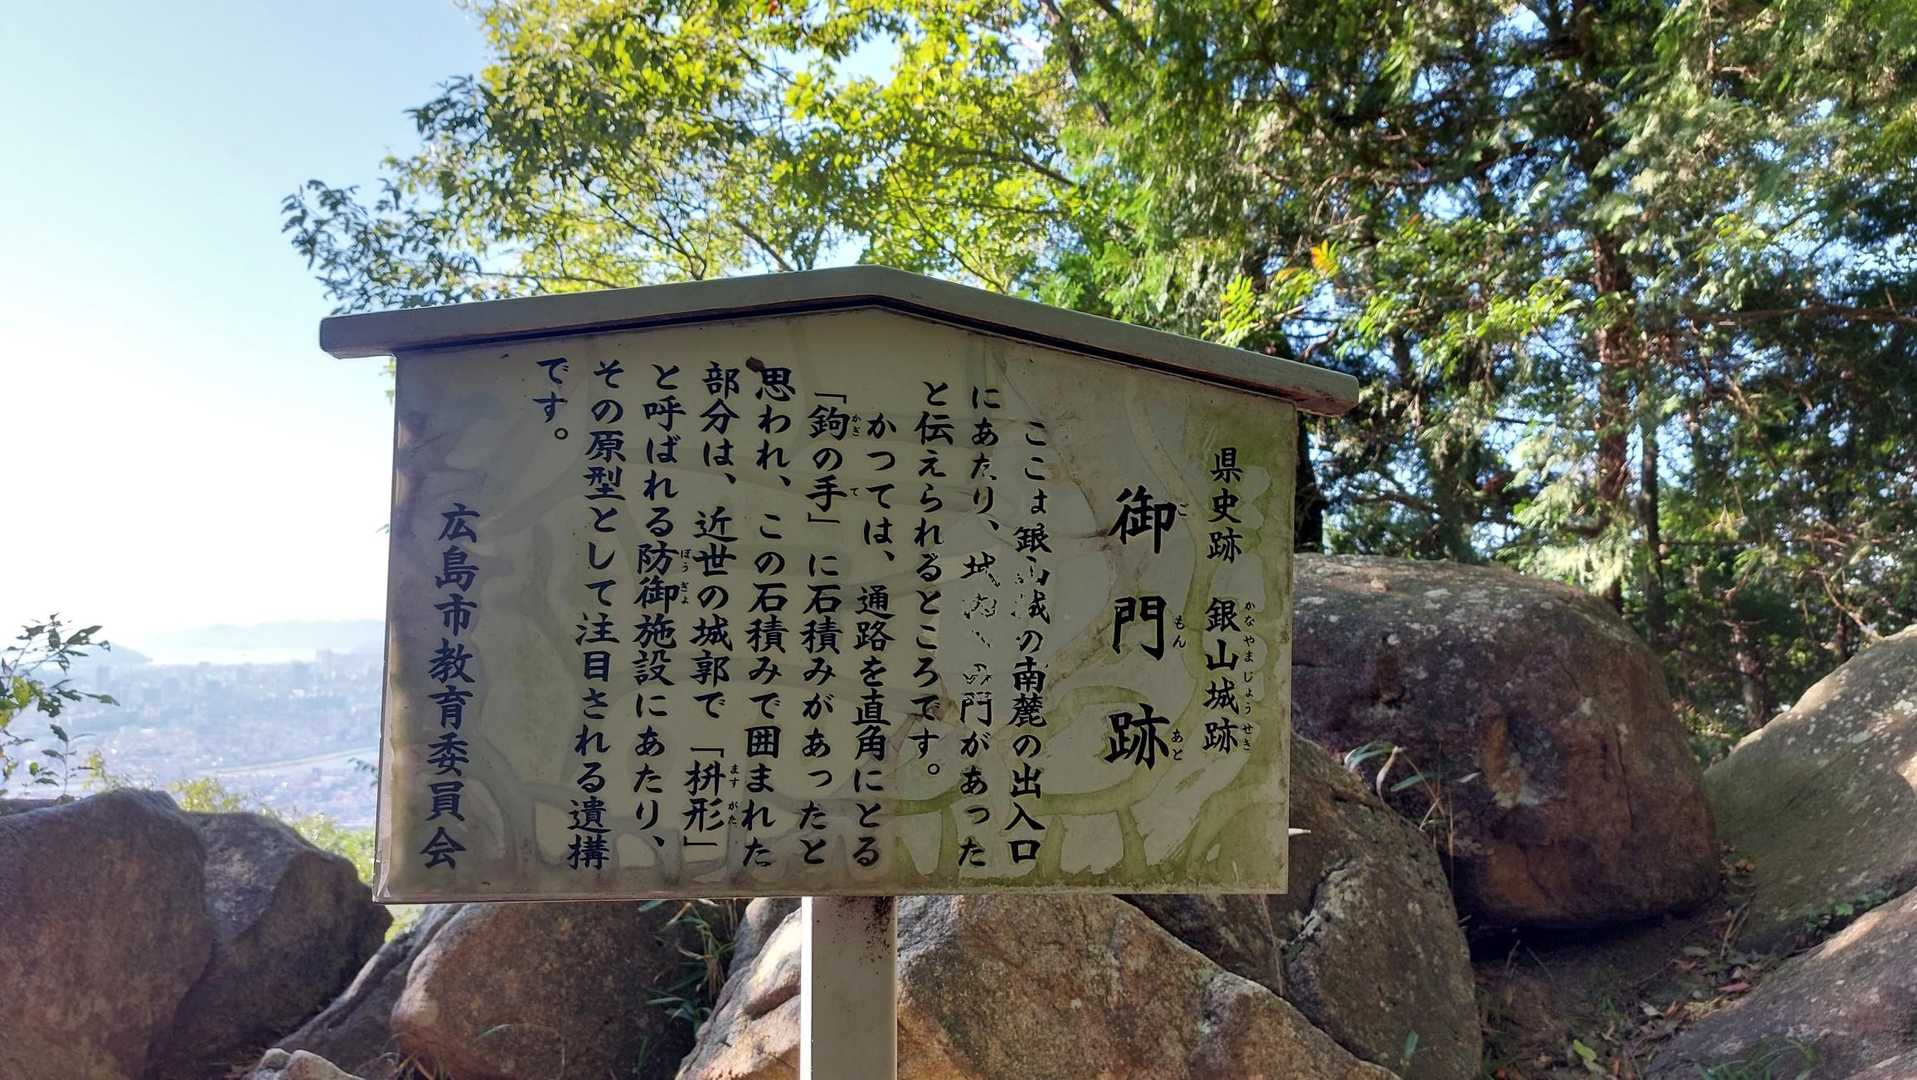 県史跡 銀山城跡
かなやまじょうせき
御門跡
ごもんあと
ここは銀山城の南麓の出入口
にあたり、城内への門があった
と伝えられるところです。
かつては、通路を直角にとる
「鉤の手」に石積みがあったと
かぎ て
思われ、この石積みで囲まれた
部分は、近世の城郭で「枡形」
ますがた
と呼ばれる防御施設にあたり、
ぼうぎょ
その原型として注目される遺構
です。
広島市教育委員会